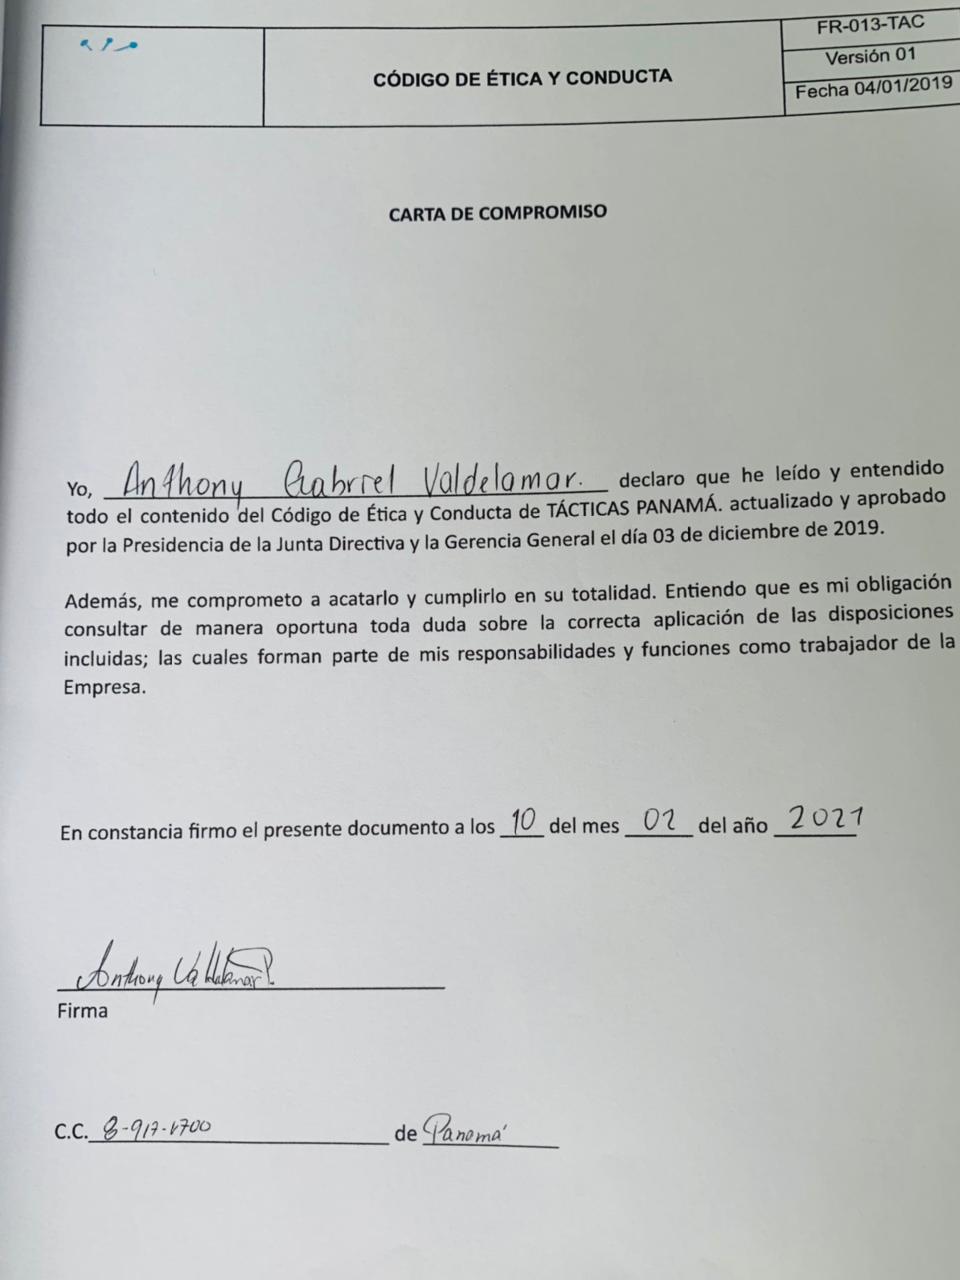 CÓDIGO DE ÉTICA Y CONDUCTA
FR-013-TAC
Versión 01
Fecha 04/01/2019
CARTA DE COMPROMISO
Yo, Anthony Gabriel Valdelamar. declaro que he leído y entendido
todo el contenido del Código de Ética y Conducta de TÁCTICAS PANAMÁ. actualizado y aprobado
por la Presidencia de la Junta Directiva y la Gerencia General el día 03 de diciembre de 2019.
Además, me comprometo a acatarlo y cumplirlo en su totalidad. Entiendo que es mi obligación
consultar de manera oportuna toda duda sobre la correcta aplicación de las disposiciones
incluidas; las cuales forman parte de mis responsabilidades y funciones como trabajador de la
Empresa.
En constancia firmo el presente documento a los 10 del mes 02 del año 2021
Anthony Valdelamar
Firma
C.C. de Panamá